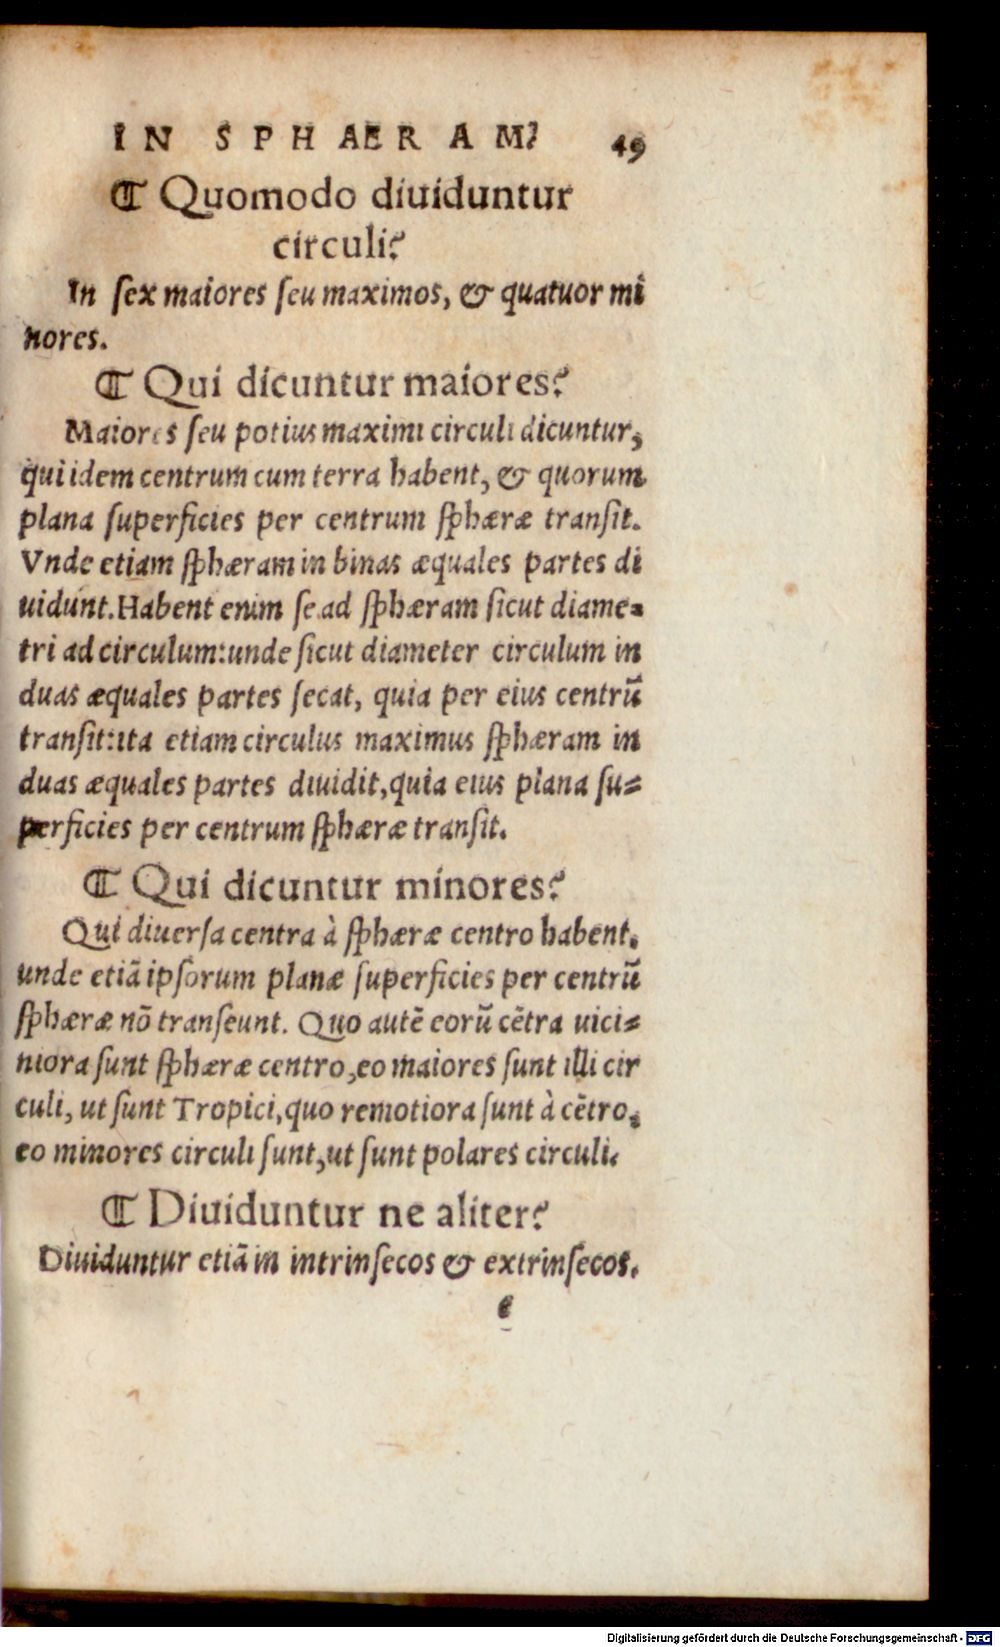 IN SPHAERAM? 49
¶ Quomodo diuiduntur
circuli?
In ſex maiores ſeu maximos, & quatuor mi
nores.
¶ Qui dicuntur maiores?
Maiores ſeu potius maximi circuli dicuntur,
qui idem centrum cum terra habent, & quorum
plana ſuperficies per centrum ſphæræ tranſit.
Vnde etiam ſphæram in binas æquales partes di
uidunt. Habent enim ſe ad ſphæram ſicut diame-
tri ad circulum: unde ſicut diameter circulum in
duas æquales partes ſecat, quia per eius centrū
tranſit: ita etiam circulus maximus ſphæram in
duas æquales partes diuidit, quia eius plana ſu-
perficies per centrum ſphæræ tranſit.
¶ Qui dicuntur minores?
Qui diuerſa centra à ſphæræ centro habent.
unde etiā ipſorum planæ ſuperficies per centrū
ſphæræ nō tranſeunt. Quo autē eorū cētra uici-
niora ſunt ſphæræ centro, eo maiores ſunt illi cir
culi, ut ſunt Tropici, quo remotiora ſunt à cētro,
eo minores circuli ſunt, ut ſunt polares circuli.
¶ Diuiduntur ne aliter?
Diuiduntur etiā in intrinſecos & extrinſecos.
e
Digitalisierung gefördert durch die Deutsche Forschungsgemeinschaft - DFG